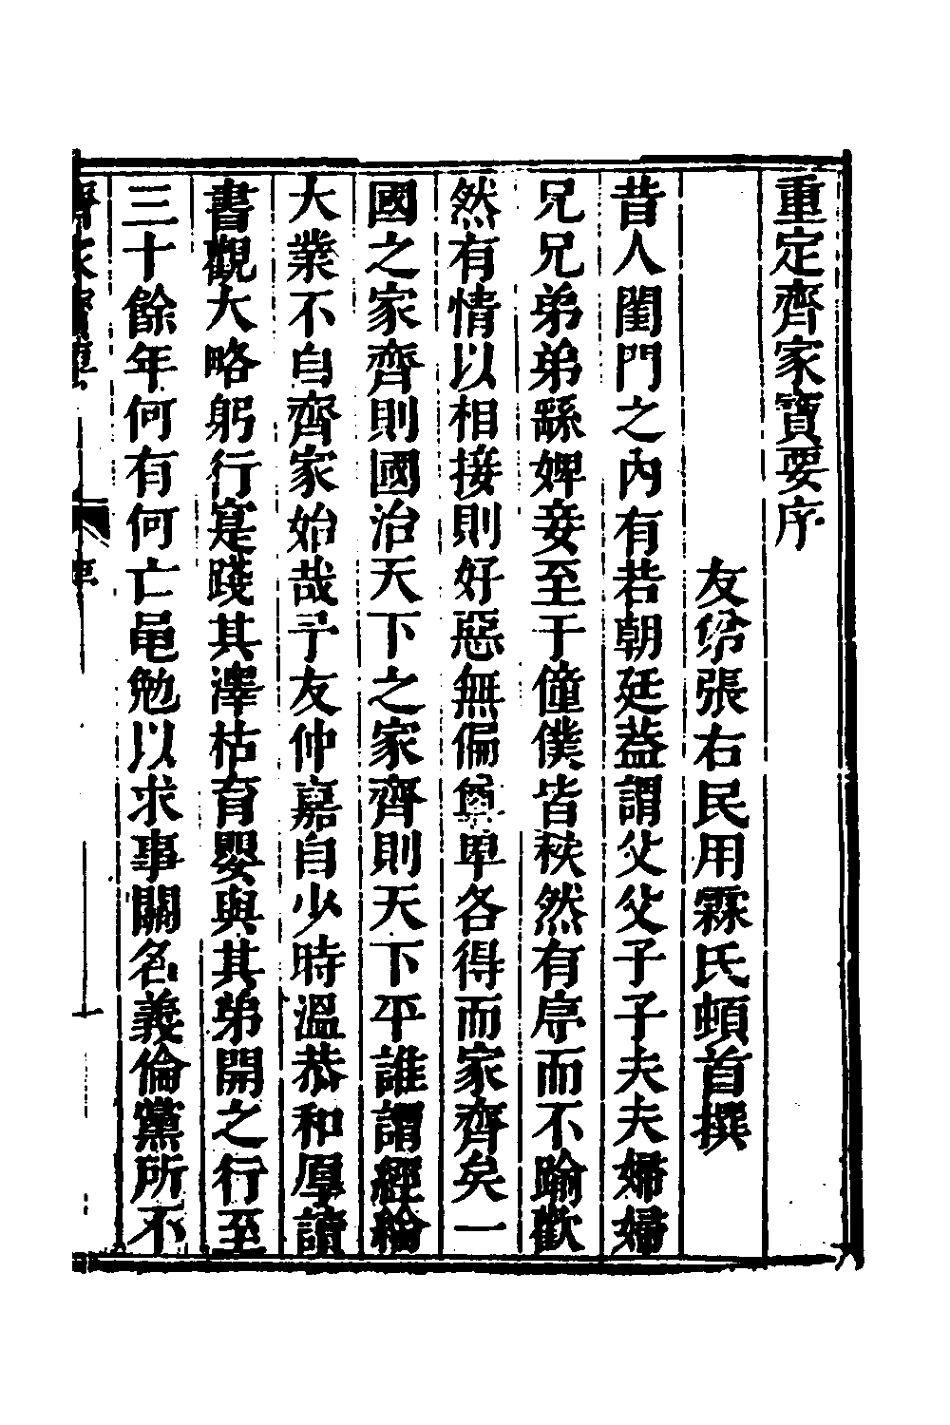 重定齊家寶要序
友弟張右民用霖氏頓首撰
昔人閨門之內有若朝廷葢謂父父子子夫夫婦婦
兄兄弟弟繇婢妾至于僮僕皆秩然有序而不踰歡
然有情以相接則好惡無偏尊卑各得而家齊矣一
國之家齊則國治天下之家齊則天下平誰謂經綸
大業不自齊家始哉予友仲嘉自少時溫恭和厚讀
書觀大略躬行寔踐其澤枯育嬰與其弟開之行至
三十餘年何有何亡黽勉以求事關名義倫黨所不